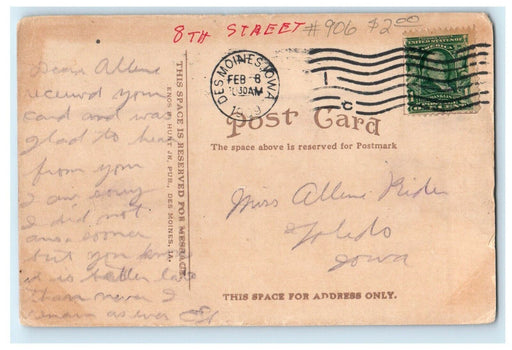 8TH STREET #906 $2.00
DES MOINES, IOWA
FEB 8
10 30AM
1
C
UNITED STATES OF AMERICA
Post Card
The space above is reserved for Postmark
THIS SPACE IS RESERVED FOR MESSAGE
ENOS B. HUNT JR, PUB., DES MOINES, IA.
Dear Allene
received your
card and was
glad to hear
from you
I am sorry
I did not
ans. sooner
but you know
it is better late
than never I
remain as ever
Miss Allene Rider
Toledo
Iowa
THIS SPACE FOR ADDRESS ONLY.